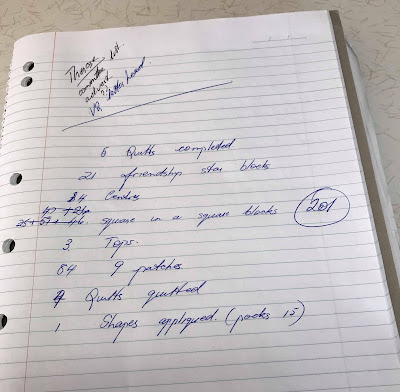 Therese
committee list
artwork
??
VR letter head
6 Quilts completed
21 friendship star blocks
84 Centres
25 + 57 + 46. square in a square blocks 201
3. Tops.
84 9 patches.
Quilts quilted
1 Shapes appliqued. (packs 15)